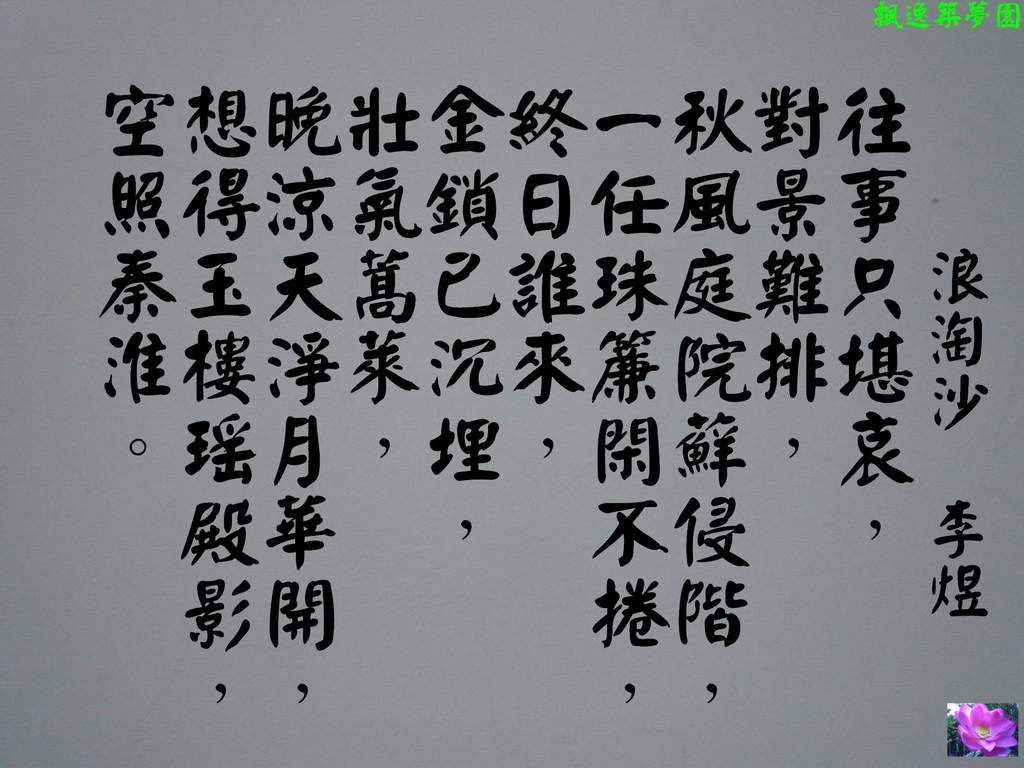 飄逸築夢園
浪淘沙 李煜
往事只堪哀，
對景難排，
秋風庭院蘚侵階，
一任珠簾閑不捲，
終日誰來，
金鎖已沉埋，
壯氣蒿萊，
晚涼天淨月華開，
想得玉樓瑤殿影，
空照秦淮。